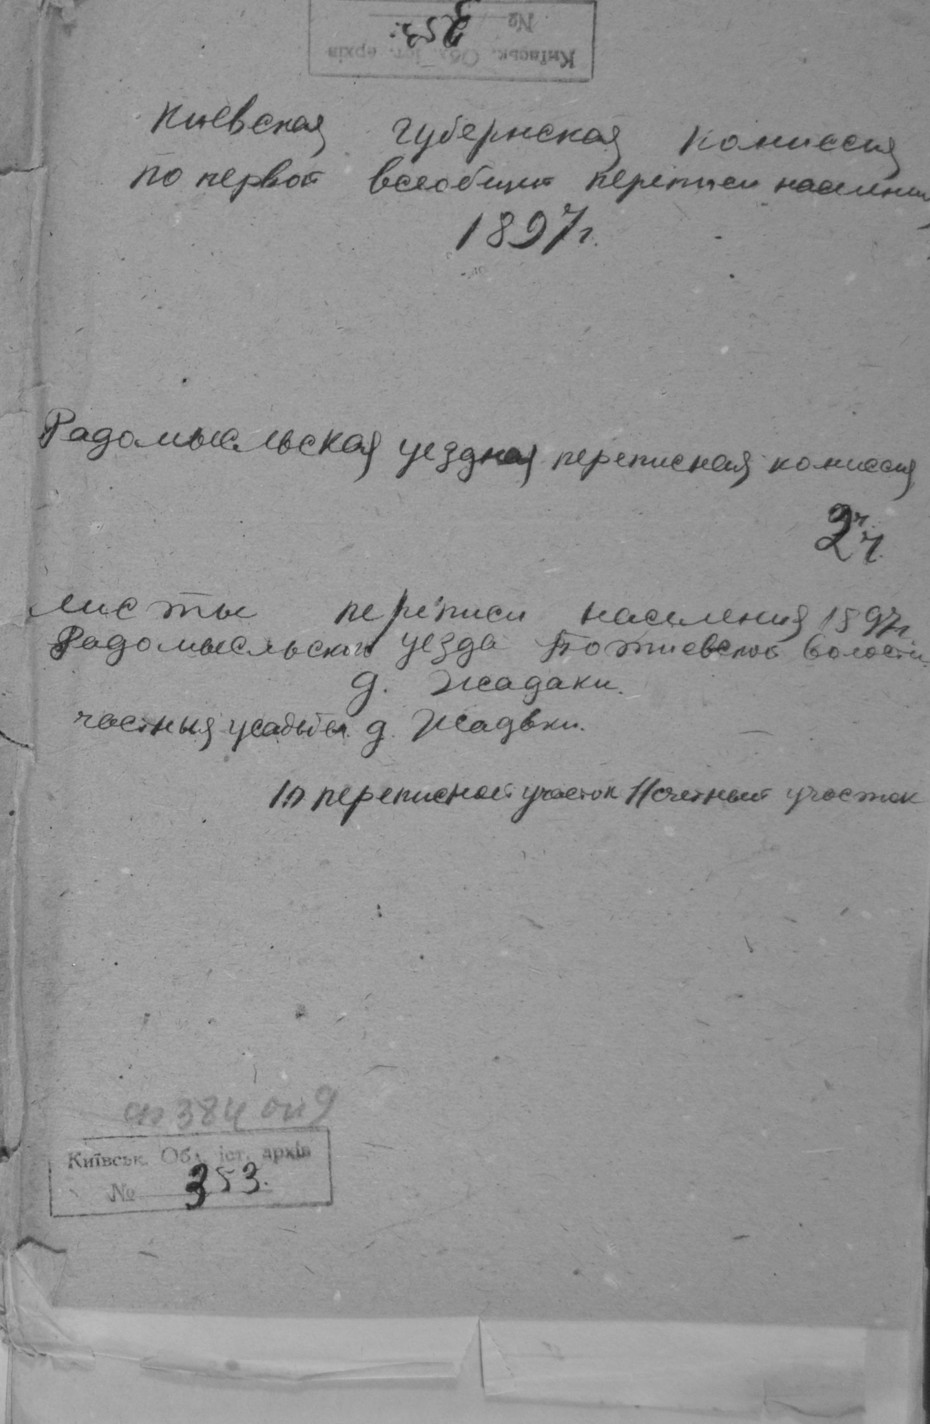 Київськ. Обл. іст. архів
№ 353.
Киевская губернская комиссия
по первой всеобщей переписи населения
1897 г.
Радомысльская уездная переписная комиссия
2 ч.
листы переписи населения 1897 г.
Радомысльского уезда Потиевской волости.
д. Жадаки.
частныя усадьбы д. Жадвки.
10 переписной участок 11 счетный участок
ф 384 оп 9
Київськ. Обл. іст. архів
№ 353.